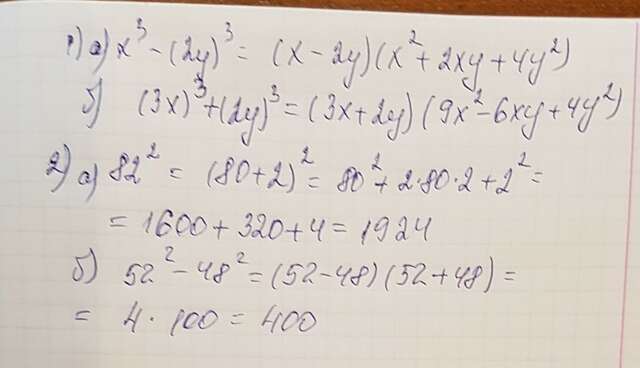 1) а) x³ - (2y)³ = (x - 2y)(x² + 2xy + 4y²)
б) (3x)³ + (2y)³ = (3x + 2y)(9x² - 6xy + 4y²)
2) а) 82² = (80 + 2)² = 80² + 2·80·2 + 2² =
= 1600 + 320 + 4 = 1924
б) 52² - 48² = (52 - 48)(52 + 48) =
= 4 · 100 = 400